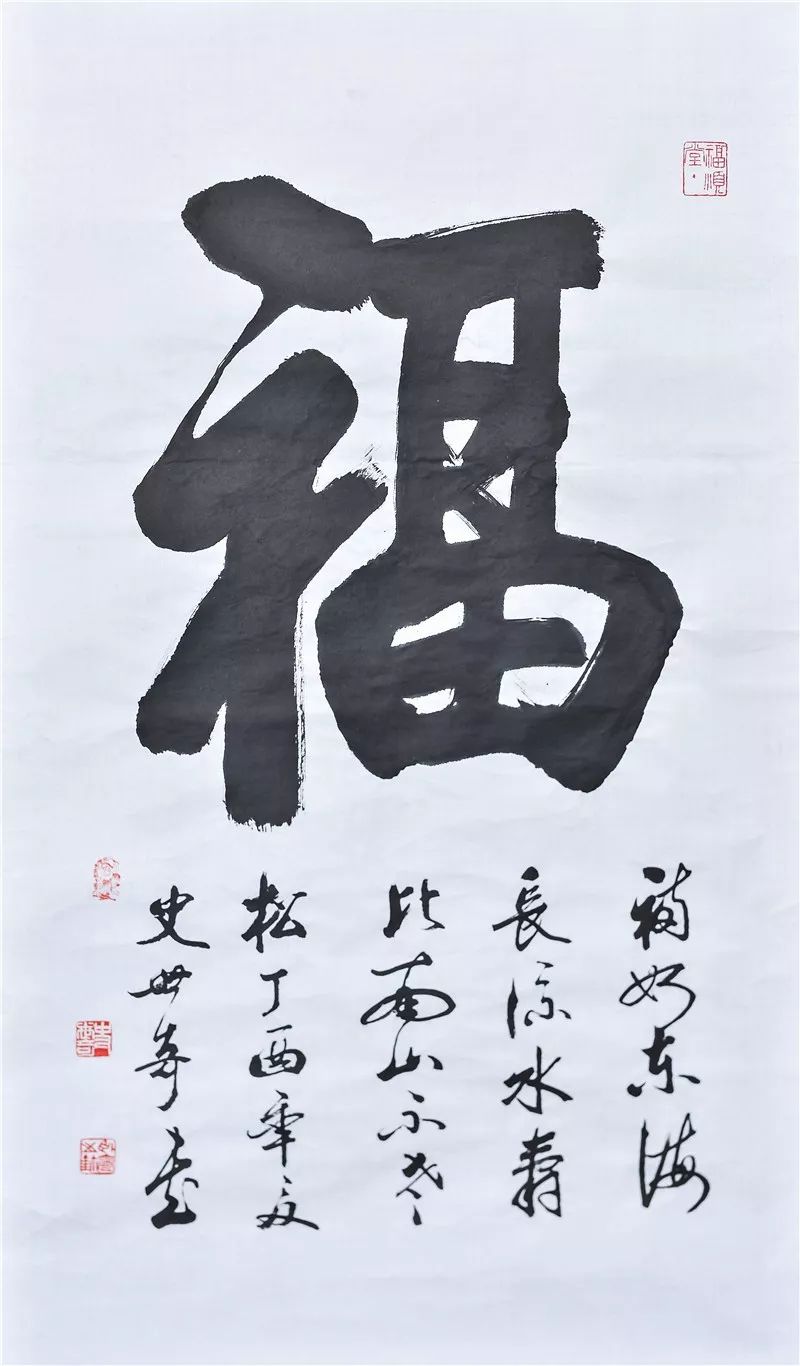 福順堂
福
福如东海
長流水寿
比南山不老
松丁酉年夏
史世奇書